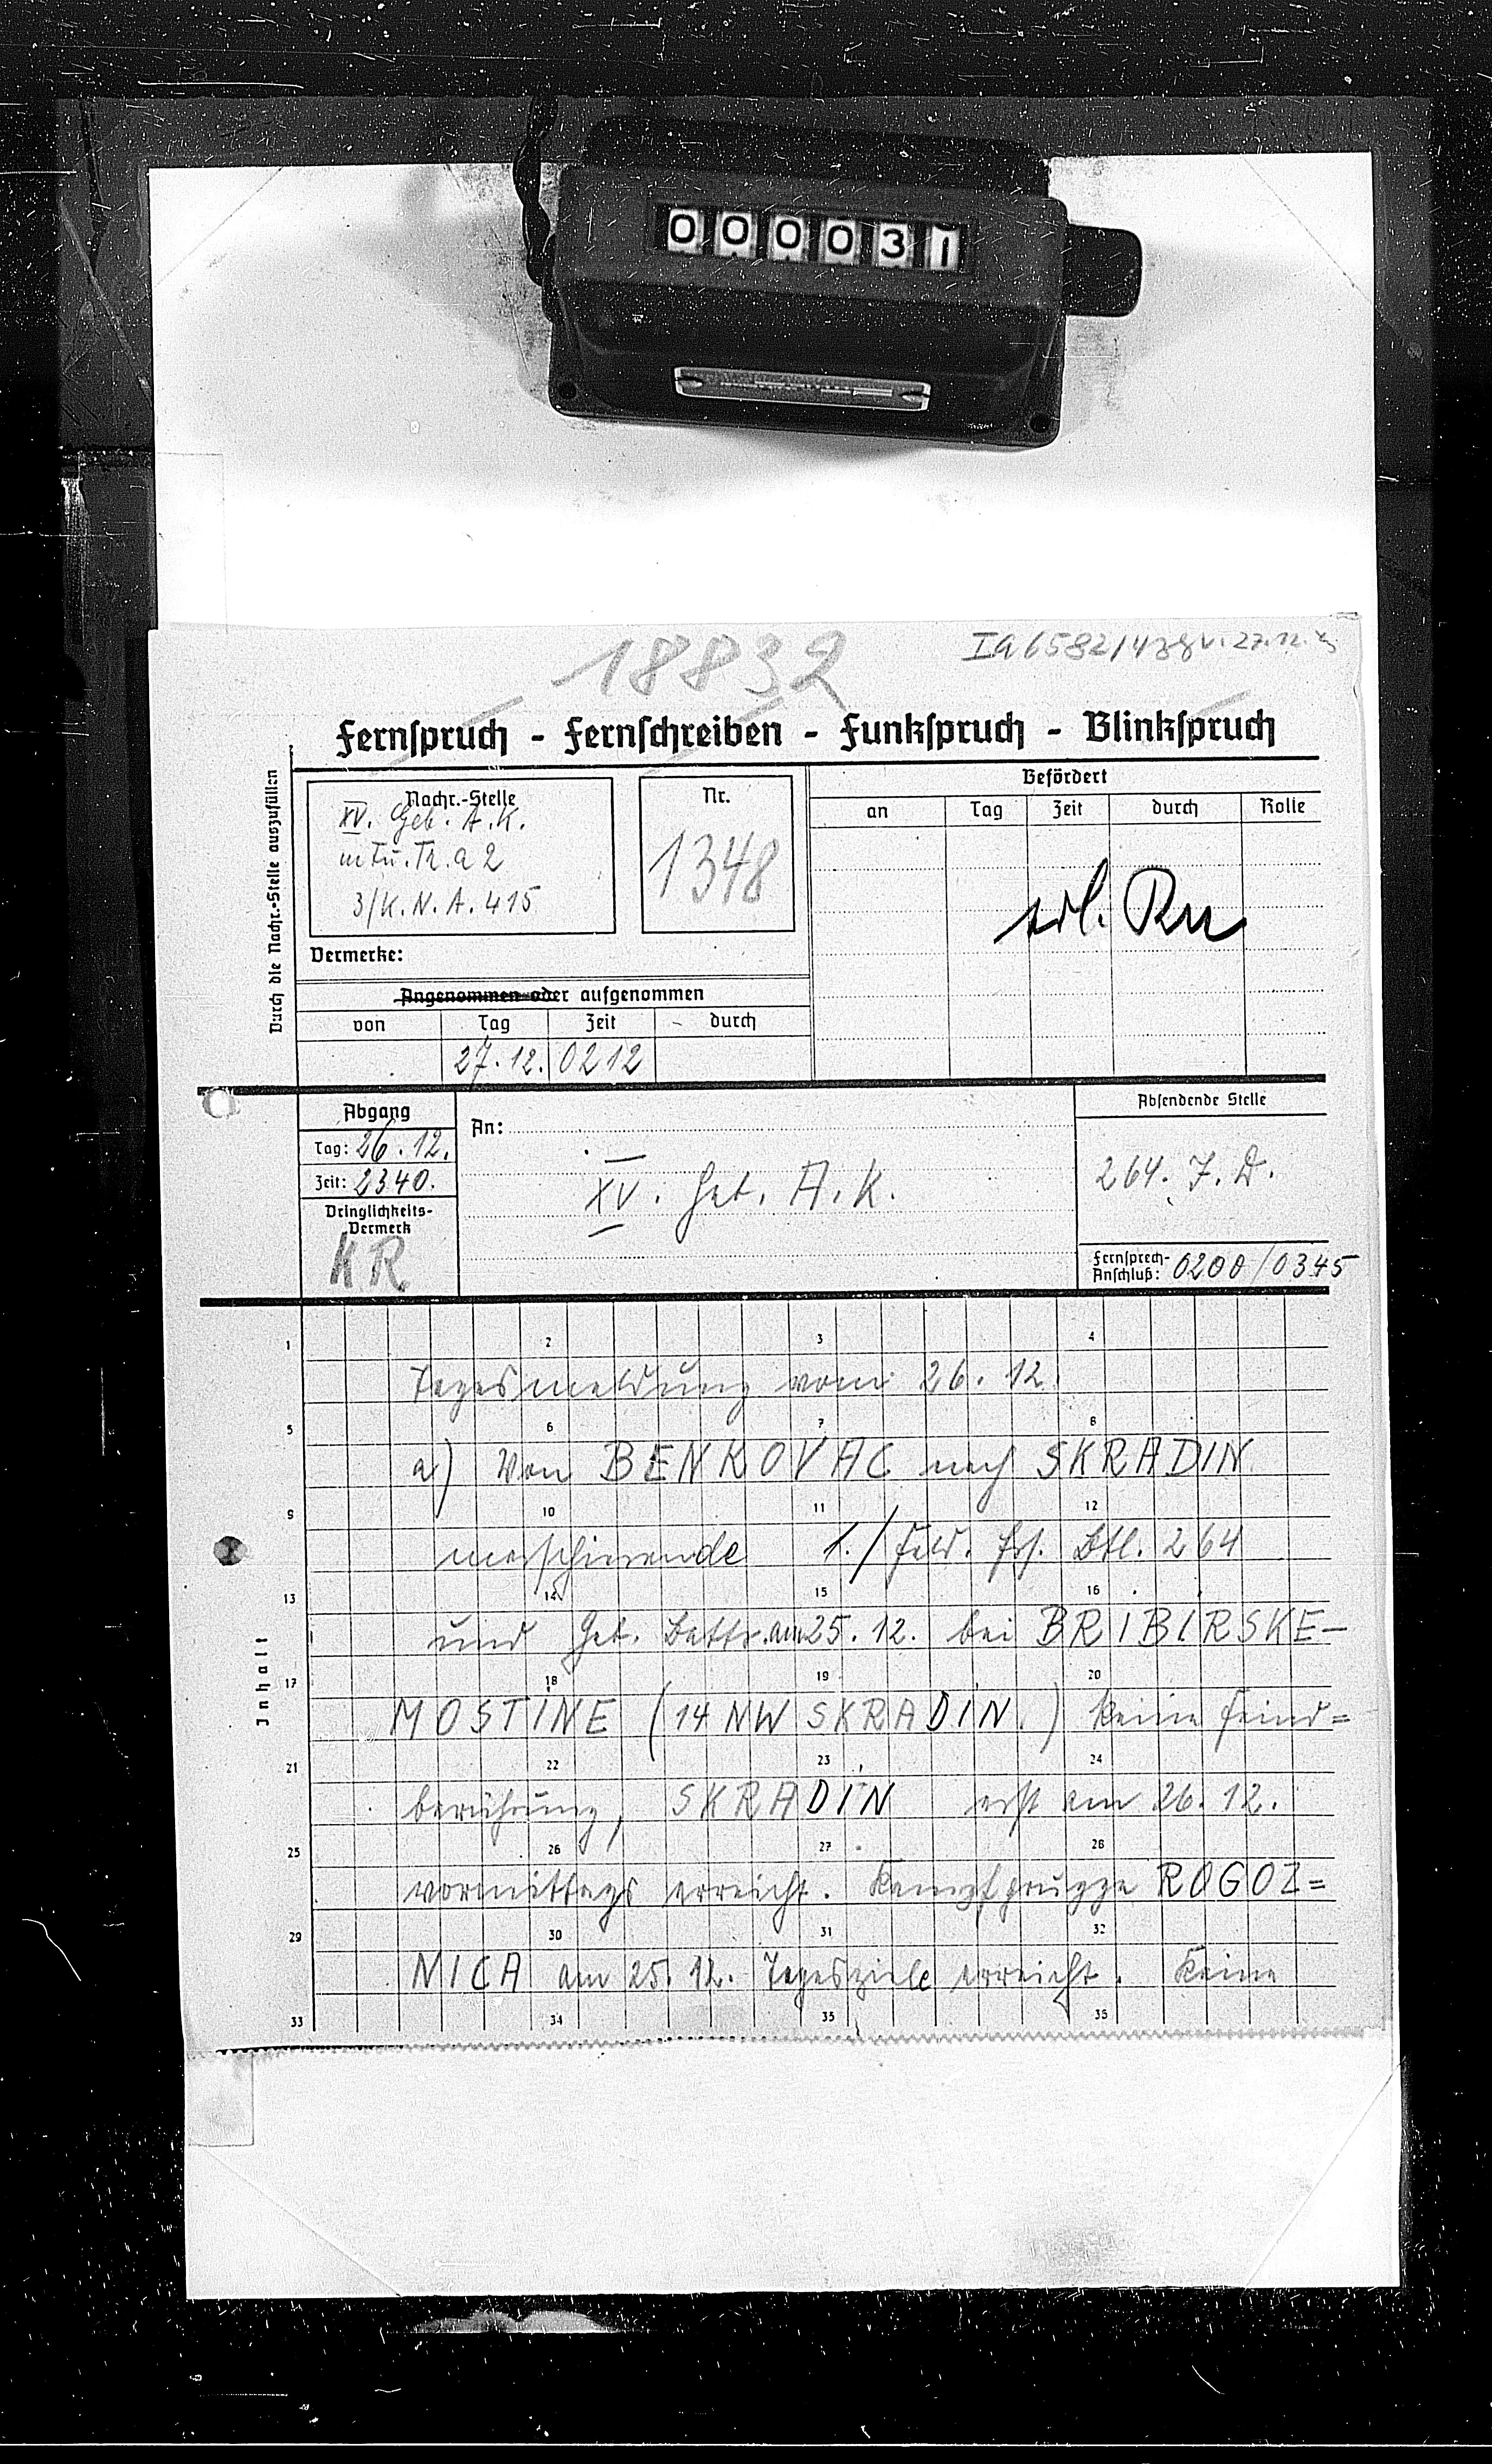 000031
18832
Ia 6582/43 g v. 27.12.
Fernspruch - Fernschreiben - Funkspruch - Blinkspruch
Durch die Nachr.-Stelle auszufüllen
Nachr.-Stelle
XV. Geb. A.K.
m Fu. Tr. a 2
3/K.N.A. 415
Nr.
1348
Befördert
an Tag Zeit durch Rolle
erl.
Vermerke:
Angenommen oder aufgenommen
von Tag Zeit durch
27.12. 0212
Abgang
Tag: 26.12.
Zeit: 2340.
Dringlichkeits-
Vermerk
KR
An:
XV. Geb. A.K.
Absendende Stelle
264. I.D.
Fernsprech-
Anschluß: 0200/0345
Inhalt
1 2 3 4
Tagesmeldung vom 26.12.
5 6 7 8
a) Von BENKOVAC nach SKRADIN
9 10 11 12
marschierende 1./Feld. Ers. Btl. 264
13 14 15 16
und Geb. Battr. am 25.12. bei BRIBIRSKE-
17 18 19 20
MOSTINE (14 NW SKRADIN) keine Feind=
21 22 23 24
berührung, SKRADIN erst am 26.12.
25 26 27 28
vormittags erreicht. Kampfgruppe ROGOZ=
29 30 31 32
NICA am 25.12. Tagesziele erreicht. Keine
33 34 35 35